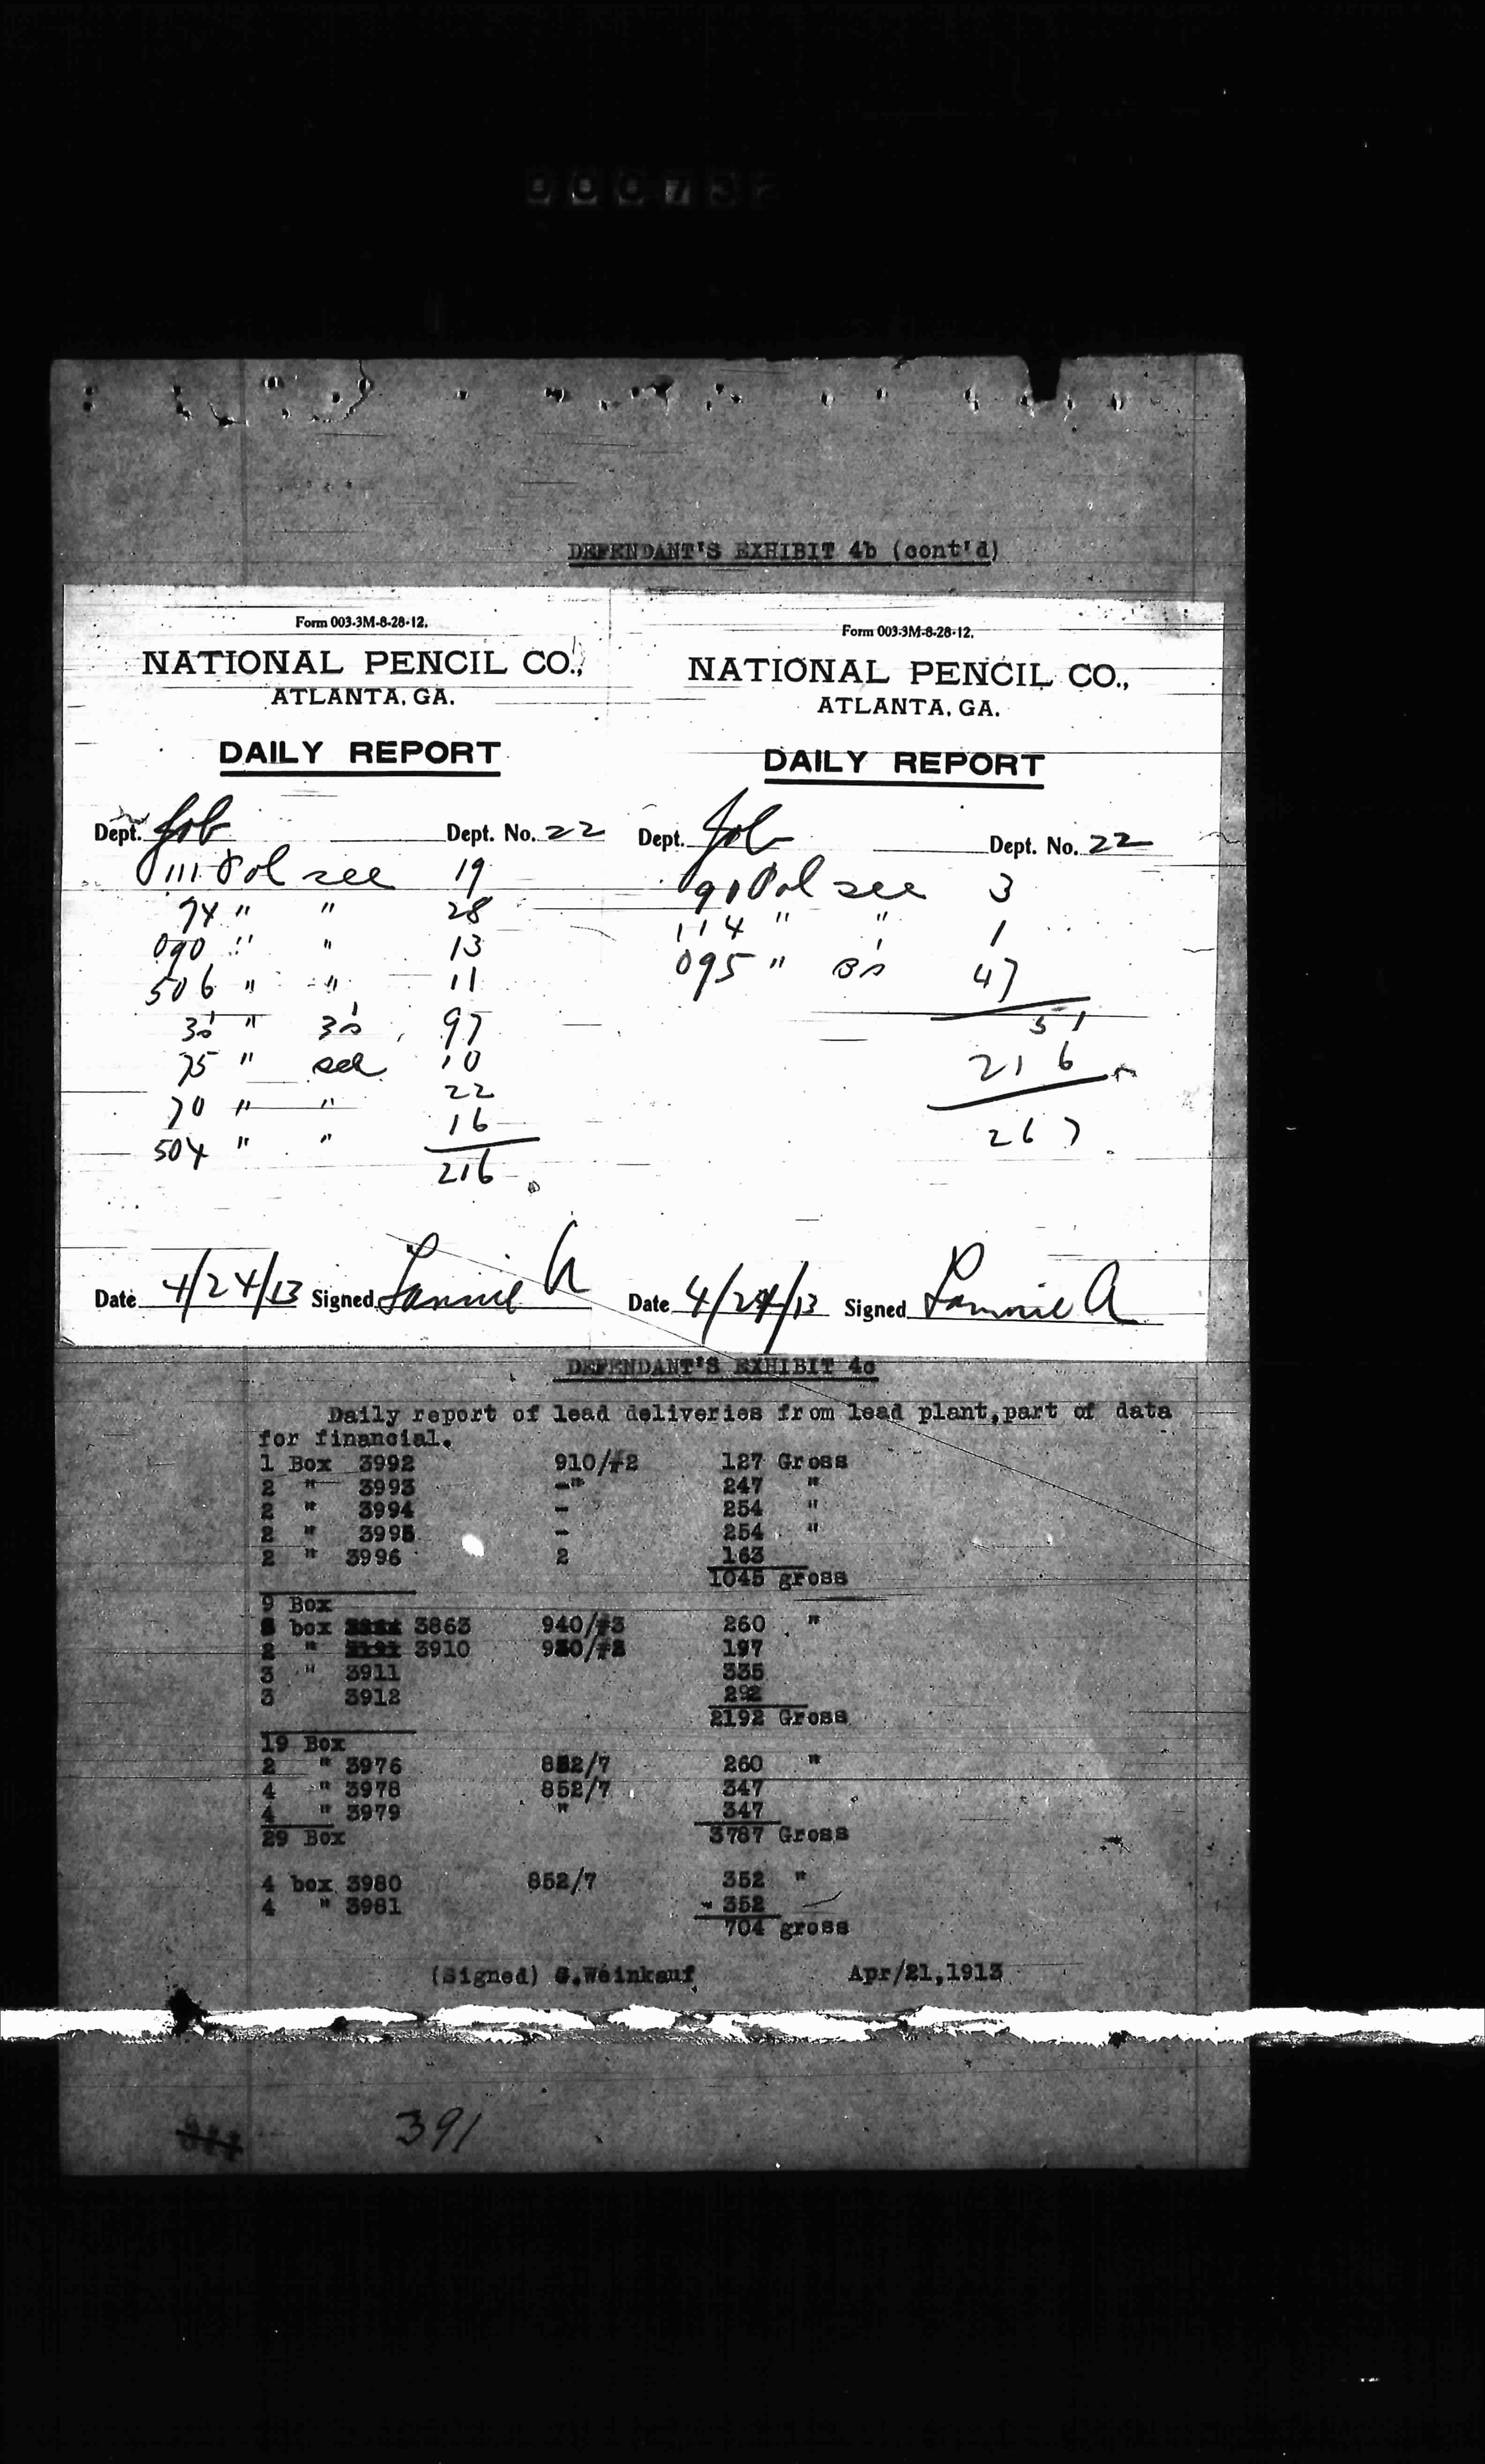 DEFENDANT'S EXHIBIT 4b (cont'd)
Form 003-3M-8-28-12.
NATIONAL PENCIL CO.,
ATLANTA, GA.
DAILY REPORT
Dept. Job Dept. No. 22
111 Pol see 19
74 " " 28
090 " " 13
506 " " 11
3s " 3s 97
75 " see 10
70 " " 22
504 " " 16
216
Date 4/24/13 Signed Fannie A
Form 003-3M-8-28-12.
NATIONAL PENCIL CO.,
ATLANTA, GA.
DAILY REPORT
Dept. Job Dept. No. 22
91 Pol see 3
114 " " 1
095 " 47
51
216
267
Date 4/24/13 Signed Fannie A
DEFENDANT'S EXHIBIT 4c
Daily report of lead deliveries from lead plant,part of data
for financial.
1 Box 3992 910/#2 127 Gross
2 " 3993 -" 247 "
2 " 3994 - 254 "
2 " 3995 - 254 "
2 " 3996 2 163
1045 gross
9 Box
box 3863 940/#3 260 "
2 " 3910 197
3 " 3911 335
3 3912 292
2192 Gross
19 Box
2 " 3976 852/7 260 "
4 " 3978 852/7 347
4 " 3979 " 347
29 Box 3787 Gross
4 box 3980 852/7 352 "
4 " 3981 352
704 gross
(Signed) G.Weinkauf Apr/21,1913
391